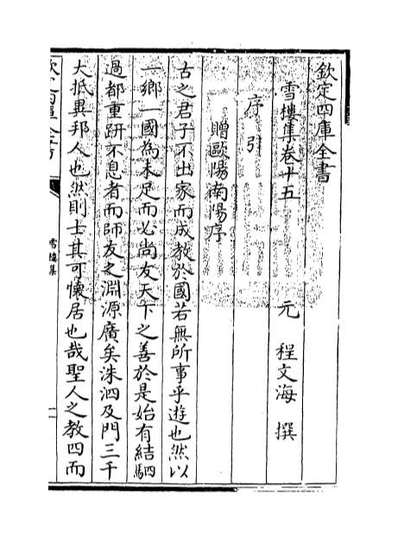 欽定四庫全書
雪樓集卷十五
元 程文海 撰
序引
贈歐陽南陽序
古之君子不出家而成教於國若無所事乎遊也然以
一鄉一國為未足而必尚友天下之善於是始有結駟
過都重趼不息者而師友之淵源廣矣洙泗及門三千
大抵異邦人也然則士其可懷居也哉聖人之教四而
雪樓集
一